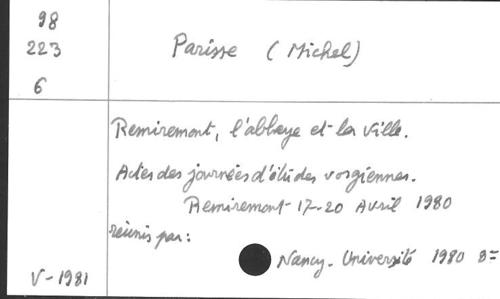 98
223
6
Parisse (Michel)
Remiremont, l'abbaye et la ville.
Actes des journées d'études vosgiennes.
Remiremont 17-20 Avril 1980
réunis par:
Nancy-Université 1980 8=
V-1981